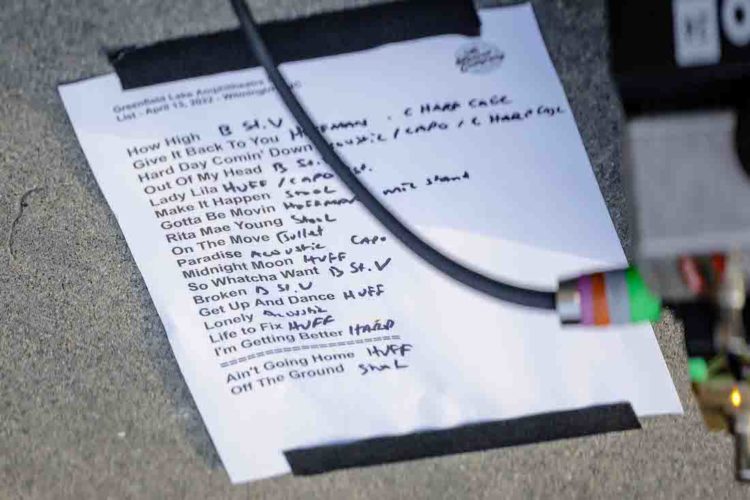 Greenfield Lake Amphitheatre
List - April 13, 2022 - Wilmington, NC
How High B St. V
Give It Back To You HUFFMAN . C HARP CASE
Hard Day Comin' Down Acoustic / CAPO / C HARP CASE
Out Of My Head B St.
Lady Lila HUFF / CAPO
Make It Happen StooL
Gotta Be Movin HUFFMAN mic stand
Rita Mae Young StooL
On The Move Bullet
Paradise Acoustic CAPO
Midnight Moon HUFF
So Whatcha Want B St. V
Broken B St. V
Get Up And Dance HUFF
Lonely Acoustic
Life to Fix HUFF
I'm Getting Better HARP
====================
Ain't Going Home HUFF
Off The Ground StooL